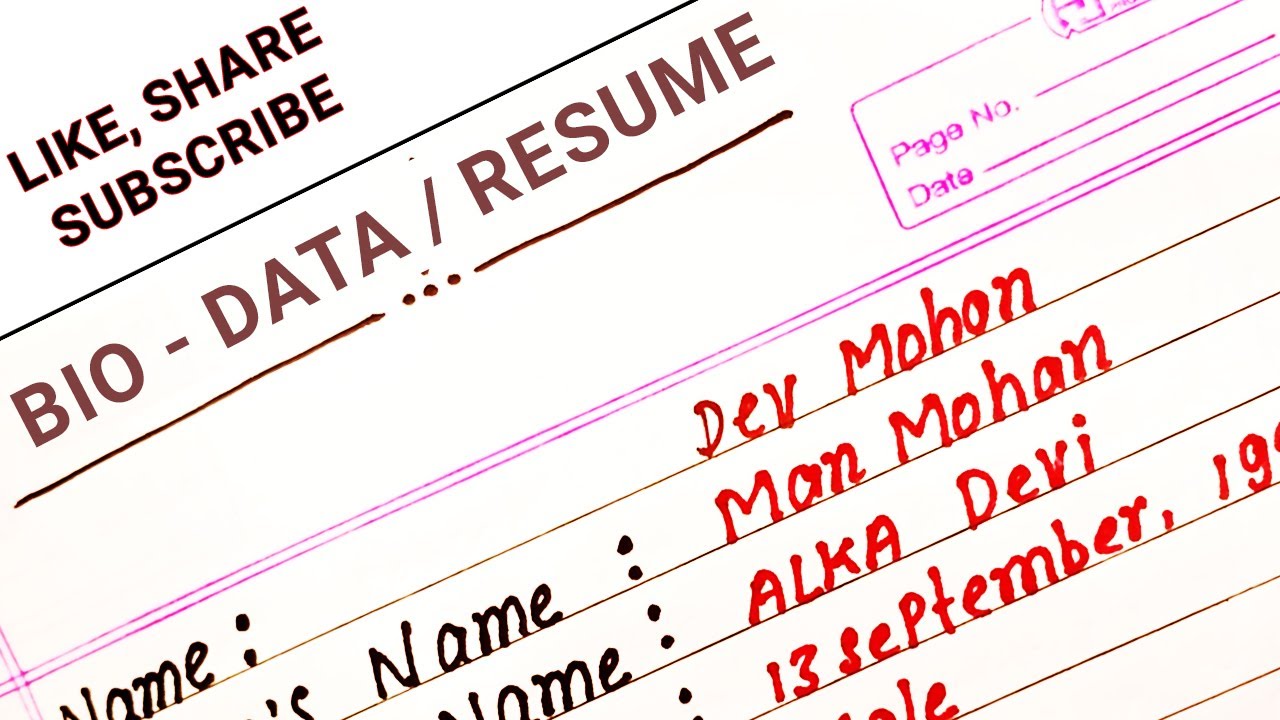 LIKE, SHARE
SUBSCRIBE
BIO - DATA / RESUME
Page No.
Date
Name : Dev Mohan
Name : Man Mohan
Name : ALKA Devi
: 13 september, 19